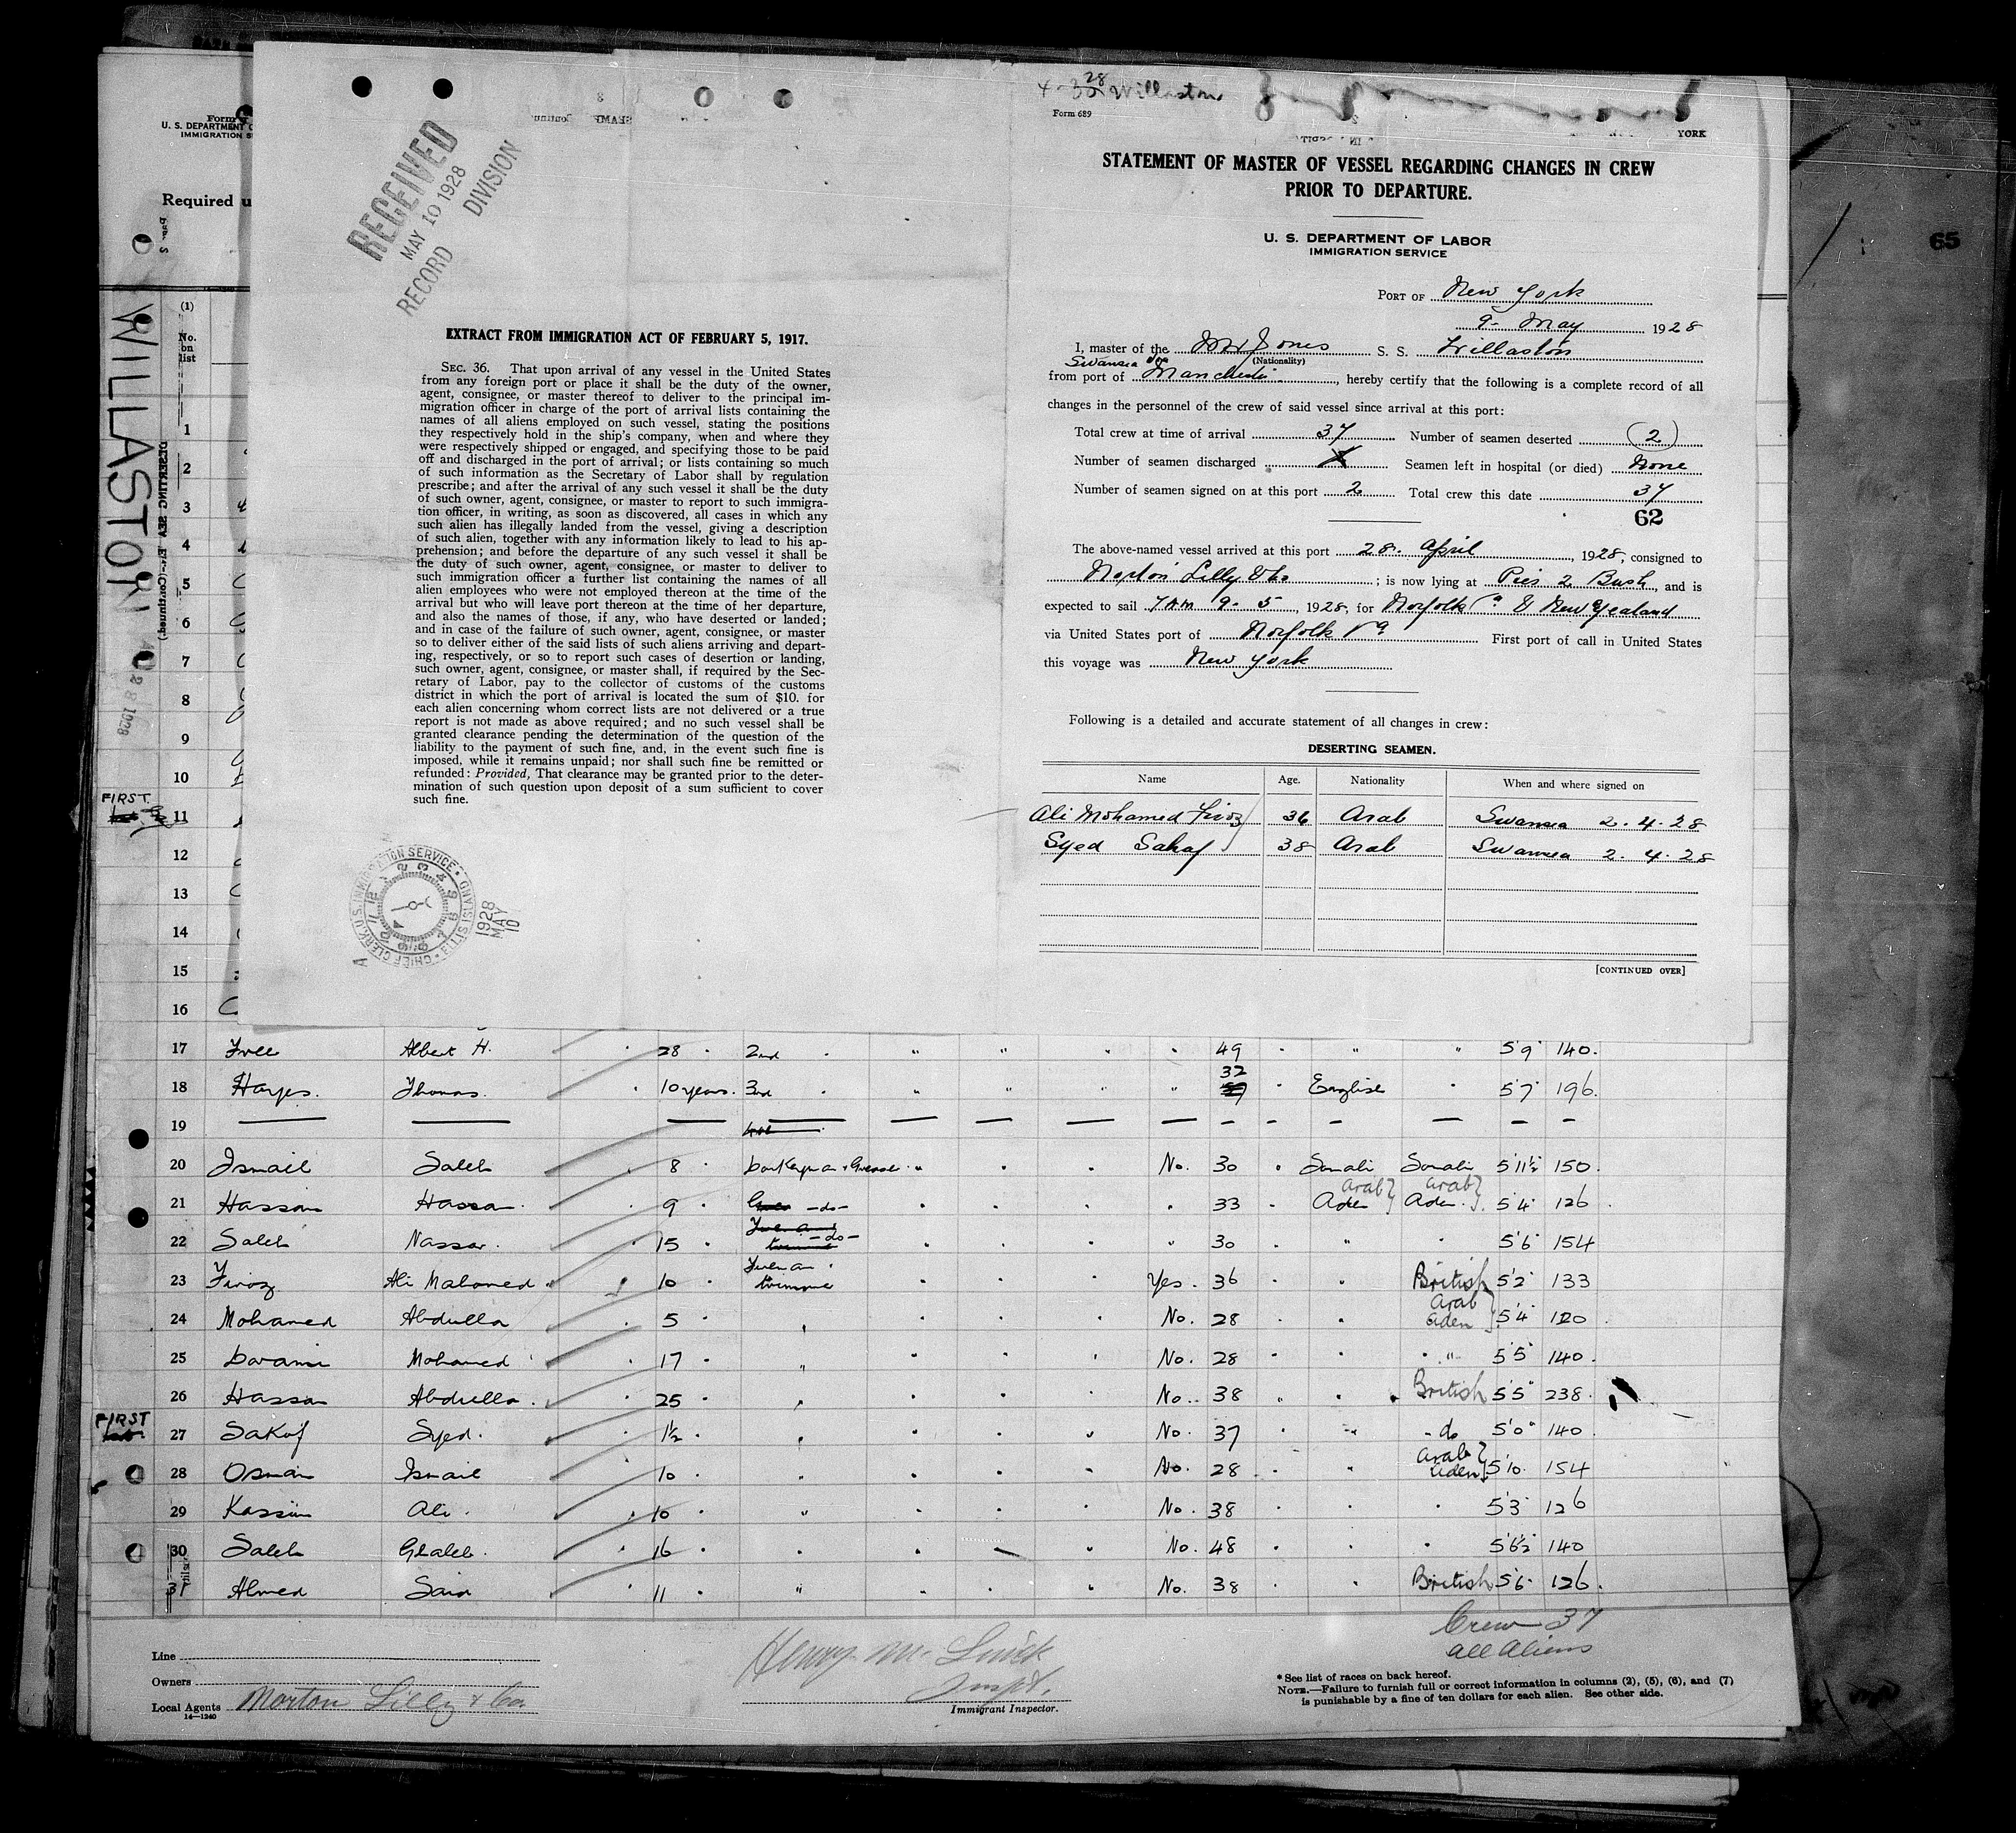 Form
U. S. DEPARTMENT
IMMIGRATION S
Required u
WILLASTON
(1)
No.
on
list
1
2
3
4
5
6
7
8
9
10
FIRST
11
12
13
14
15
16
RECEIVED
MAY 10 1928
RECORD DIVISION
EXTRACT FROM IMMIGRATION ACT OF FEBRUARY 5, 1917.
SEC. 36. That upon arrival of any vessel in the United States
from any foreign port or place it shall be the duty of the owner,
agent, consignee, or master thereof to deliver to the principal im-
migration officer in charge of the port of arrival lists containing the
names of all aliens employed on such vessel, stating the positions
they respectively hold in the ship's company, when and where they
were respectively shipped or engaged, and specifying those to be paid
off and discharged in the port of arrival; or lists containing so much
of such information as the Secretary of Labor shall by regulation
prescribe; and after the arrival of any such vessel it shall be the duty
of such owner, agent, consignee, or master to report to such immigra-
tion officer, in writing, as soon as discovered, all cases in which any
such alien has illegally landed from the vessel, giving a description
of such alien, together with any information likely to lead to his ap-
prehension; and before the departure of any such vessel it shall be
the duty of such owner, agent, consignee, or master to deliver to
such immigration officer a further list containing the names of all
alien employees who were not employed thereon at the time of the
arrival but who will leave port thereon at the time of her departure,
and also the names of those, if any, who have deserted or landed;
and in case of the failure of such owner, agent, consignee, or master
so to deliver either of the said lists of such aliens arriving and depart-
ing, respectively, or so to report such cases of desertion or landing,
such owner, agent, consignee, or master shall, if required by the Sec-
retary of Labor, pay to the collector of customs of the customs
district in which the port of arrival is located the sum of $10. for
each alien concerning whom correct lists are not delivered or a true
report is not made as above required; and no such vessel shall be
granted clearance pending the determination of the question of the
liability to the payment of such fine, and, in the event such fine is
imposed, while it remains unpaid; nor shall such fine be remitted or
refunded: Provided, That clearance may be granted prior to the deter-
mination of such question upon deposit of a sum sufficient to cover
such fine.
CHIEF CLERK, U.S. IMMIGRATION SERVICE
1928
MAY
10
A
28
Willaston
Form 689
YORK
STATEMENT OF MASTER OF VESSEL REGARDING CHANGES IN CREW
PRIOR TO DEPARTURE.
U. S. DEPARTMENT OF LABOR
IMMIGRATION SERVICE
PORT OF New York
9. May 1928
I, master of the Jones S. S. Willaston
(Nationality)
Swansea
from port of Manchester, hereby certify that the following is a complete record of all
changes in the personnel of the crew of said vessel since arrival at this port:
Total crew at time of arrival 37 Number of seamen deserted (2)
Number of seamen discharged X Seamen left in hospital (or died) None
Number of seamen signed on at this port 2 Total crew this date 37
62
The above-named vessel arrived at this port 28. April, 1928, consigned to
Norton Lilly & Co; is now lying at Pier 2 Bush, and is
expected to sail 7 AM 9-5, 1928, for Norfolk Va & New Zealand
via United States port of Norfolk Va First port of call in United States
this voyage was New York
Following is a detailed and accurate statement of all changes in crew:
DESERTING SEAMEN.
Name Age. Nationality When and where signed on
Ali Mohamed Firoz 36 Arab Swansea 2.4.28
Syed Sakaf 38 Arab Swansea 2.4.28
[CONTINUED OVER]
65
17 Free Albert H. 28 2nd " " " " 49 " " 5'9" 140.
18 Hayes. Thomas. 10 years. 3rd " " " " 32 English " 5'7" 196.
19
20 Ismail Saleh 8 Donkeyman & Greaser " No. 30 Somali Somali 5'11½ 150.
21 Hassan Hassan. 9 -do- 33 Arab Aden Arab Aden 5'4" 126
22 Saleh Nassar. 15 -do- " 30 " " 5'6" 154
23 Firoz Ali Mahomed 10 Fireman trimmer Yes. 36 " British 5'2" 133
24 Mohamed Abdulla 5 " No. 28 " Arab Aden 5'4" 120
25 Mohamed 17 " No. 28 " " 5'5" 140.
26 Hassan Abdulla. 25 " No. 38 " British 5'5" 238.
FIRST
27 Sakaf Syed. 1½ " No. 37 " -do 5'0" 140.
28 Osman Ismail 10 " No. 28 " Arab Aden 5'10 154
29 Kassim Ali. 10 " No. 38 5'3" 126
30 Saleh Ghaleb. 16 No. 48 5'6½" 140
31 Ahmed Said 11 " No. 38 British 5'6" 126.
Crew 37
all Aliens
Line
Owners
Local Agents Norton Lilly & Co.
14—1240
Insp't.
Immigrant Inspector.
* See list of races on back hereof.
NOTE.—Failure to furnish full or correct information in columns (2), (5), (6), and (7)
is punishable by a fine of ten dollars for each alien. See other side.